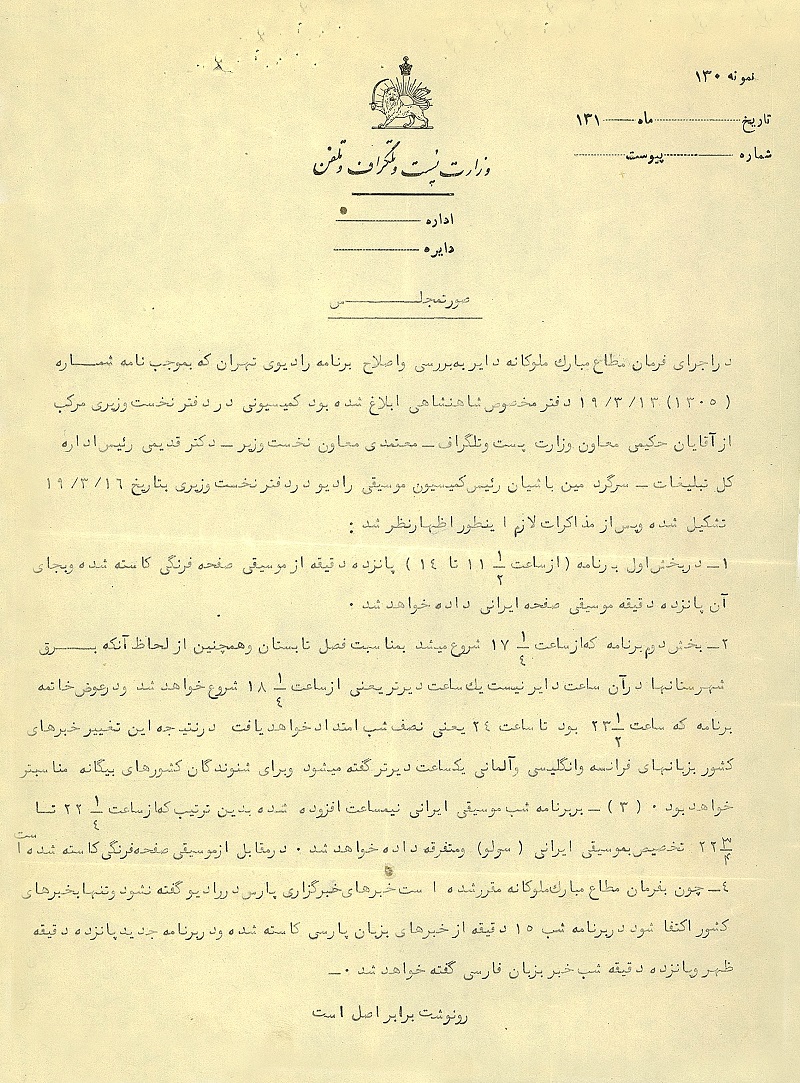 نمونه ۱۳۰
تاریخ ماه ۱۳۱
شماره پیوست
وزارت پست و تلگراف و تلفن
اداره
دایره
صورتمجلس
دراجرای فرمان مطاع مبارك ملوكانه دایر به‌بررسی واصلاح برنامه رادیوی تهران که بموجب نامه شماره
(۱۳۰۵) ۱۹/۳/۱۳ دفتر مخصوص شاهنشاهی ابلاغ شده بود کمیسیونی دردفتر نخست وزیری مرکب
ازآقایان حکیمی معاون وزارت پست وتلگراف ــ معتمدی معاون نخست وزیر ــ دکتر قدیمی رئیس اداره
کل تبلیغات ــ سرگرد مین باشیان رئیس کمیسیون موسیقی رادیو دردفتر نخست وزیری بتاریخ ۱۹/۳/۱۶
تشکیل شده وپس از مذاکرات لازم اینطور اظهارنظر شد :
۱ــ دربخش اول برنامه (ازساعت ۱۱ ۱/۲ تا ۱٤) پانزده دقیقه از موسیقی صفحه فرنگی کاسته شده وبجای
آن پانزده دقیقه موسیقی صفحه ایرانی داده خواهد شد ۰
۲ــ بخش دوم برنامه که‌ازساعت ۱۷ ۱/٤ شروع میشد بمناسبت فصل تابستان وهمچنین از لحاظ آنکه بـرق
شهرستانها درآن ساعت دایر نیست یك ساعت دیرتر یعنی ازساعت ۱۸ ۱/٤ شروع خواهد شد ودرعوض خاتمه
برنامه که ساعت ۲۳ ۱/۲ بود تا ساعت ۲٤ یعنی نصف شب امتداد خواهد یافت درنتیجه این تغییر خبرهای
کشور بزبانهای فرانسه وانگلیسی وآلمانی یکساعت دیرتر گفته میشود وبرای شنوندگان کشورهای بیگانه مناسبتر
خواهد بود ۰ (۳) ــ بربرنامه شب موسیقی ایرانی نیمساعت افزوده شده بدین ترتیب که‌ازساعت ۲۲ ۱/٤ تـا
۲۲ ۳/۴ تخصیص بموسیقی ایرانی (سولو) ومتفرقه داده خواهد شد ۰ درمقابل ازموسیقی صفحه فرنگی کاسته شده است
٤ــ چون بفرمان مطاع مبارك ملوكانه مقررشده است خبرهای خبرگزاری پارس دررادیو گفته نشود وتنها بخبرهای
کشور اکتفا شود دربرنامه شب ۱۵ دقیقه از خبرهای بزبان پارسی کاسته شده ودربرنامه جدید پانزده دقیقه
ظهر وپانزده دقیقه شب خبر بزبان فارسی گفته خواهد شد ۰ــ
رونوشت برابر اصل است